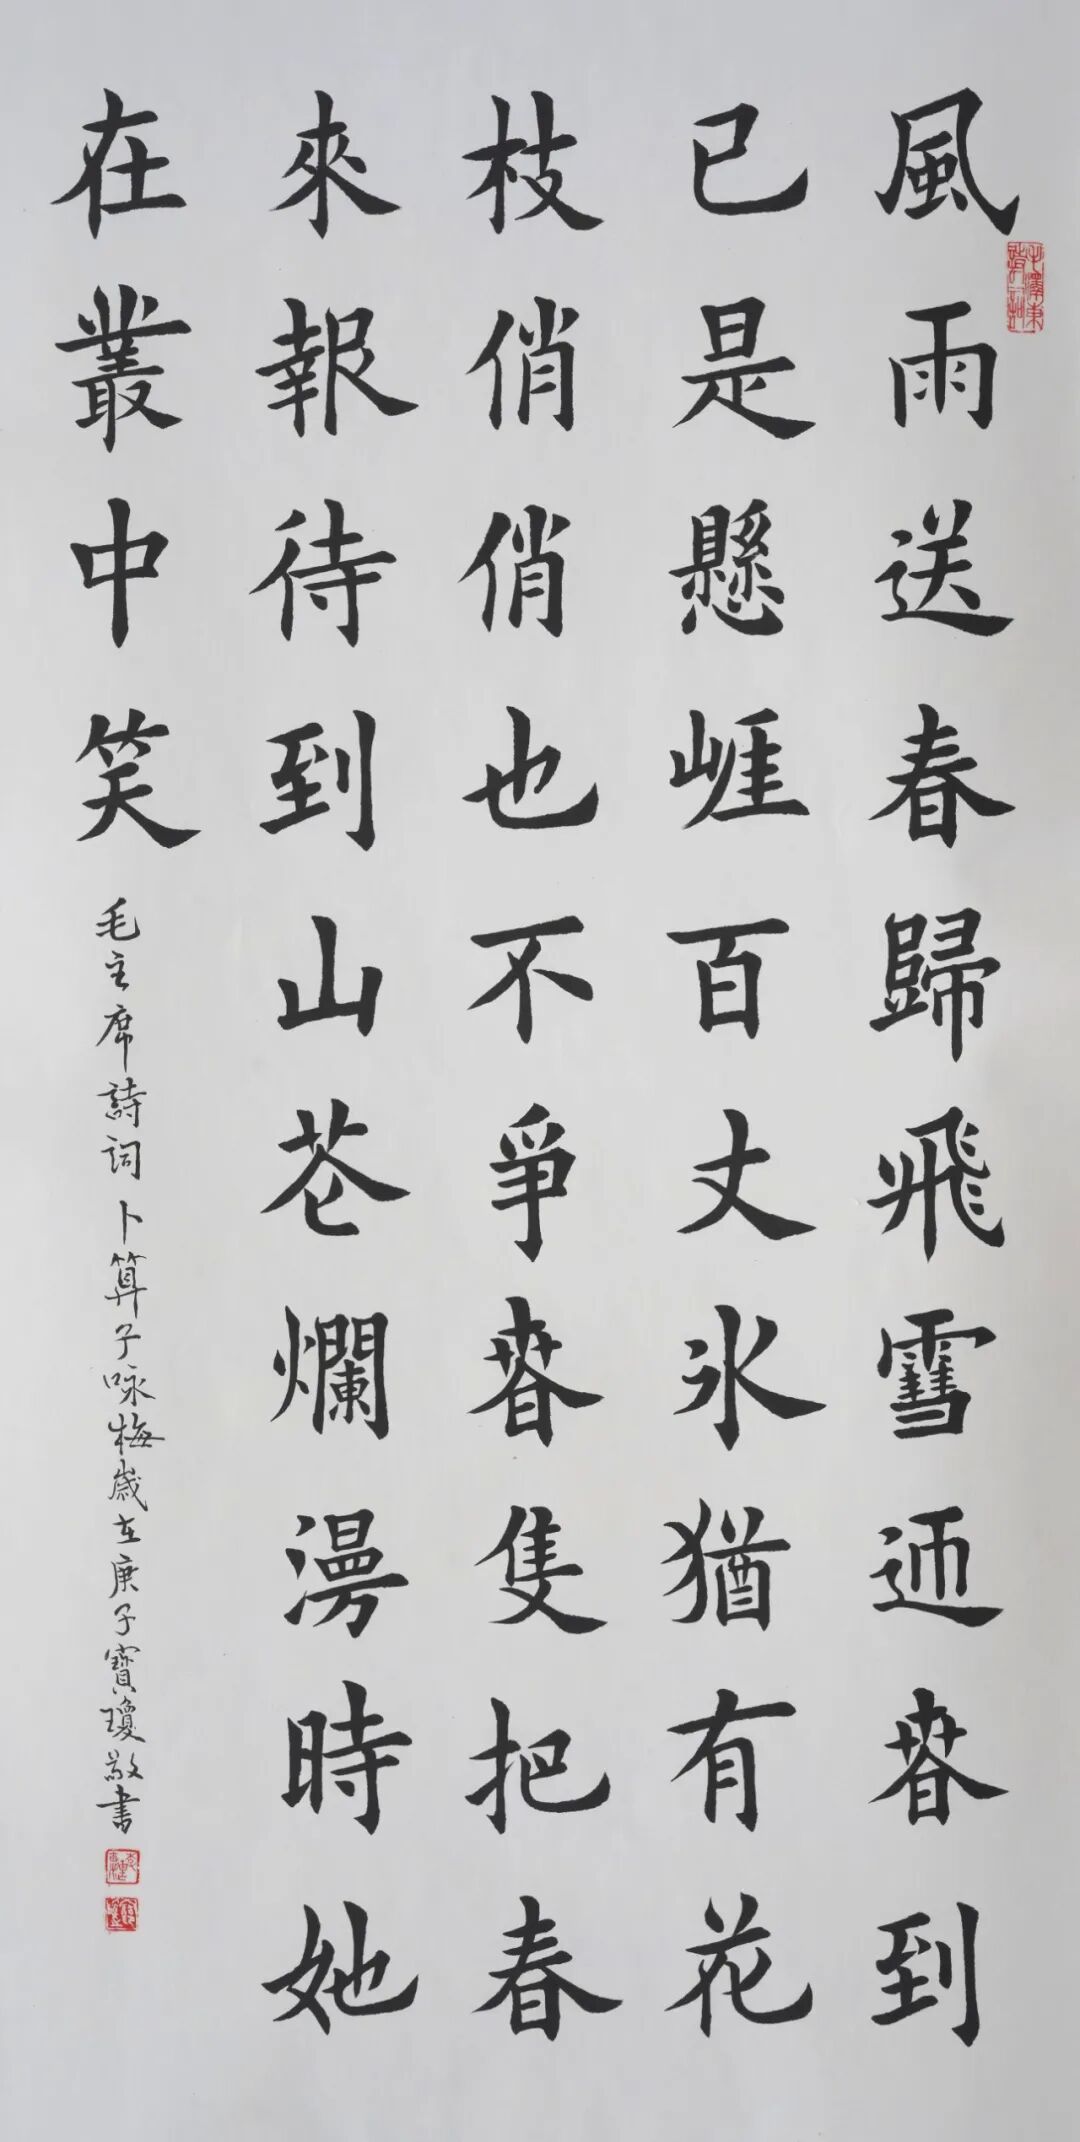 風雨送春歸飛雪迊春到
已是懸崖百丈冰猶有花
枝俏俏也不爭春隻把春
來報待到山花爛漫時她
在叢中笑
毛主席詩詞卜算子咏梅歲在庚子寶瓊敬書